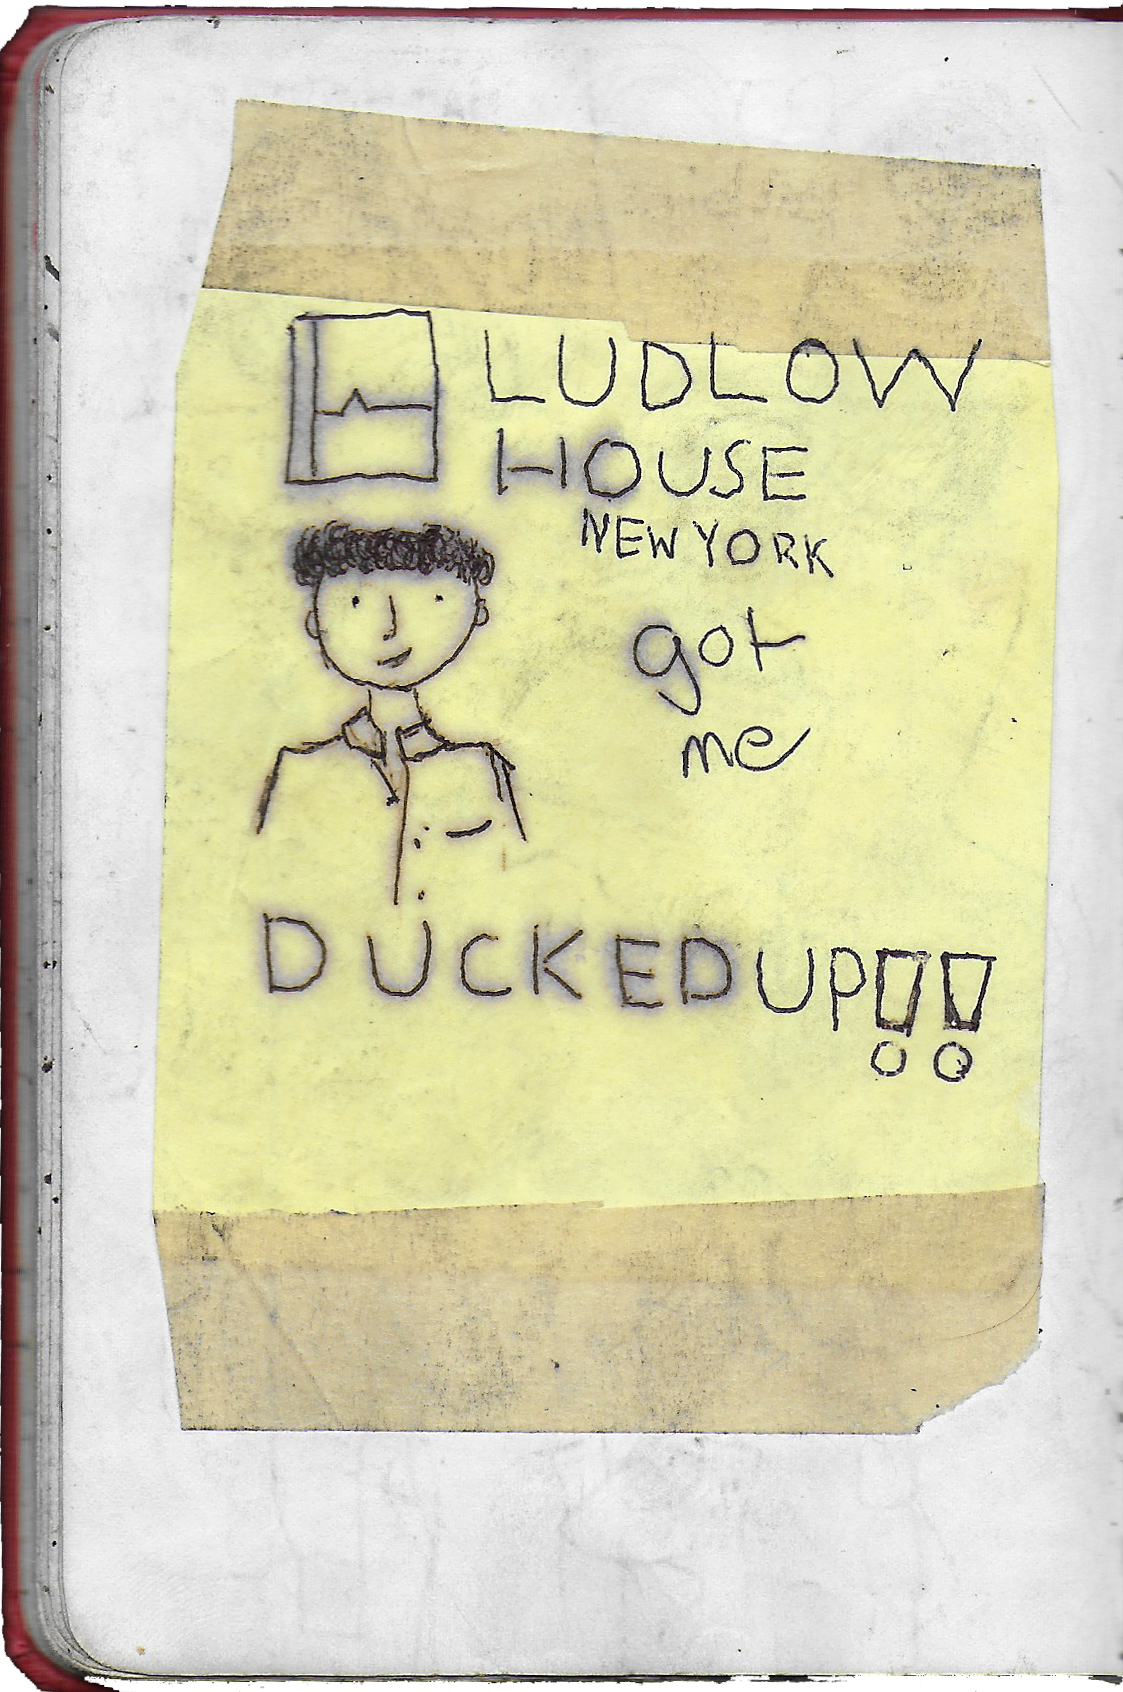 LUDLOW
HOUSE
NEW YORK
got
me
DUCKED UP!!